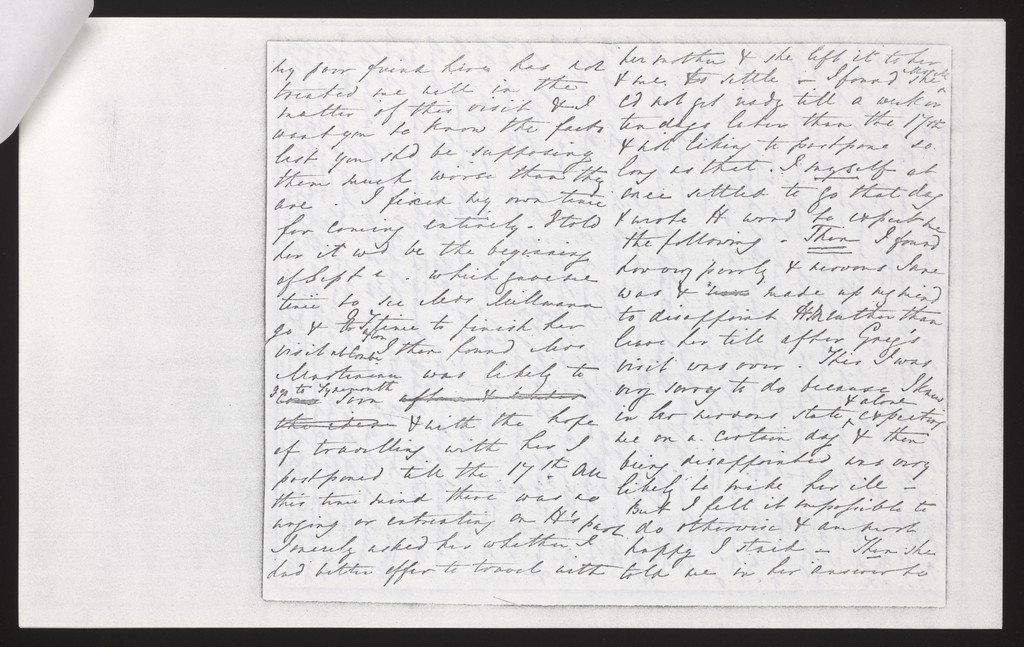 my poor friend has not
treated me well in the
matter of this visit & I
want you to know the facts
lest you shd be supposing
them much worse than they
are. I fixed my own time
for coming entirely. I told
her it wd be the beginning
of Septr. which gave me
time to see Mrs Millmann
go & time to finish her
visit I then found Mrs
Martineau was likely to
go to Tynemouth
soon
the idea & with the hope
of travelling with her I
postponed till the 17th. All
this time mind there was no
urging or entreating on H's part
I merely asked her whether I
had better offer to travel with
her mother & she left it to her
& me to settle - I found she
cd not get ready till a week or
ten days later than the 17th
& not liking to postpone so
long as that. I myself at
once settled to go that day
& wrote H word to expect me
the following. Then I found
how very poorly & nervous Jane
was & made up my mind
to disappoint rather than
leave her till after Greg's
visit was over. This I was
very sorry to do because I knew
& alone
in her nervous state, expecting
me on a certain day & then
being disappointed was very
likely to make her ill -
But I felt it impossible to
do otherwise & am most
happy I staid - Then she
told me in her answer to